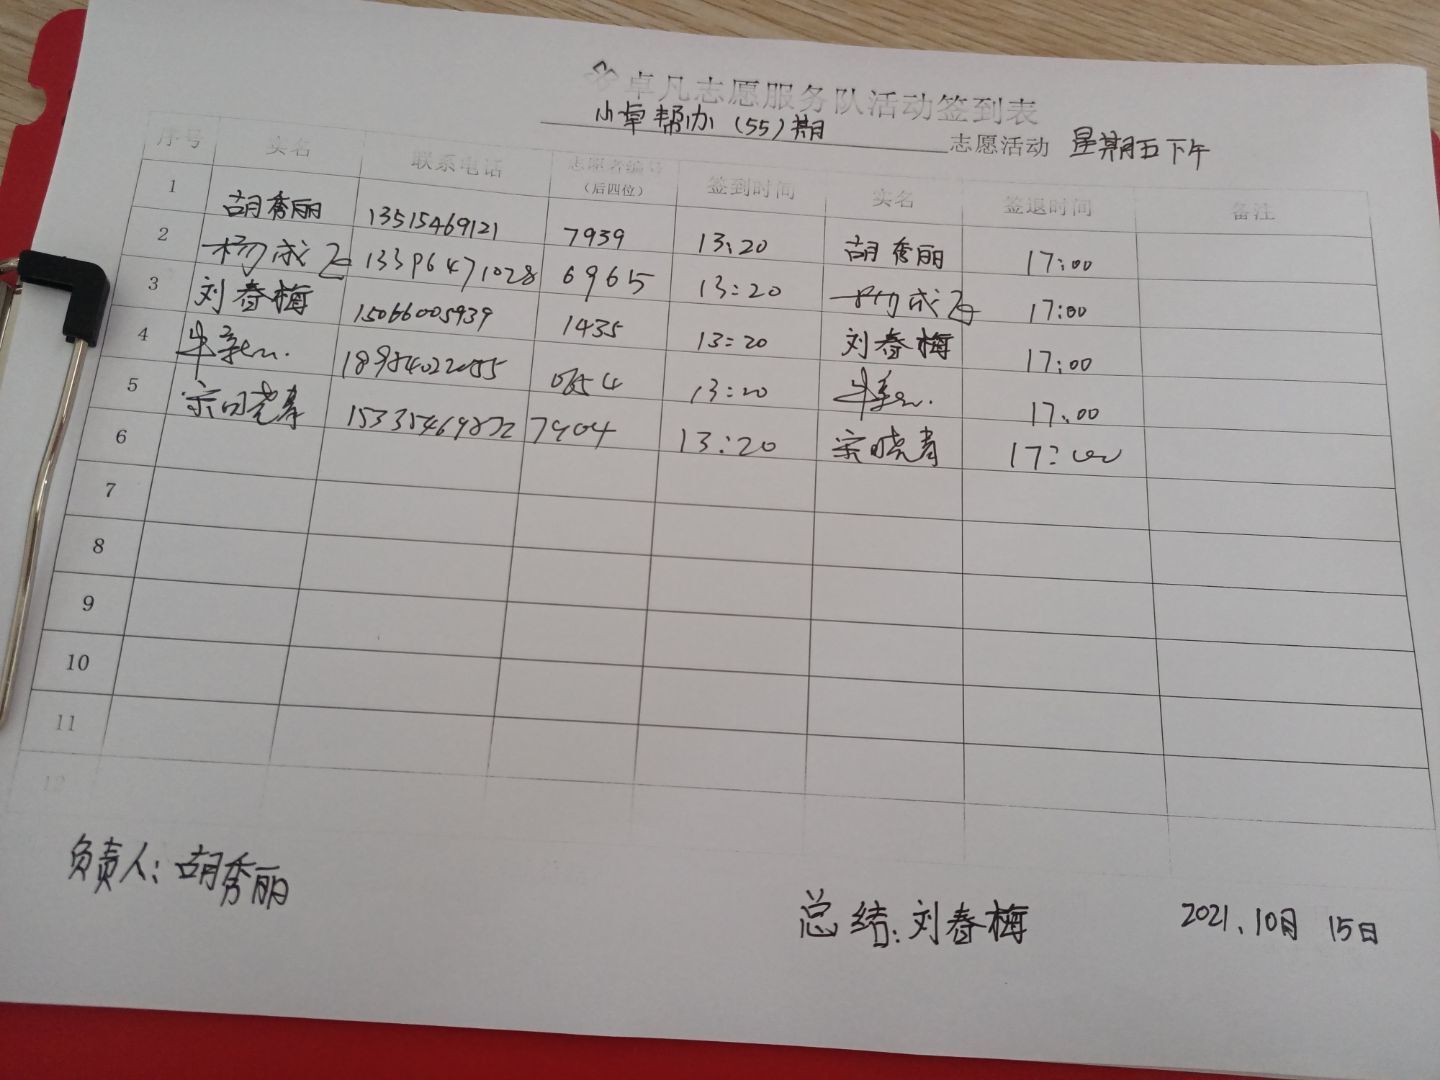 卓凡志愿服务队活动签到表
小卓帮办（55）期 志愿活动 星期五下午
序号 实名 联系电话 志愿者编号（后四位） 签到时间 实名 签退时间 备注
1 胡秀丽 13515469121 7939 13:20 胡秀丽 17:00
2 杨成 13396471028 6965 13:20 杨成 17:00
3 刘春梅 15066005939 1435 13:20 刘春梅 17:00
4 13:20 17:00
5 宗晓青 7904 13:20 宗晓青 17:00
6
7
8
9
10
11
12
负责人：胡秀丽
总结：刘春梅 2021、10月 15日